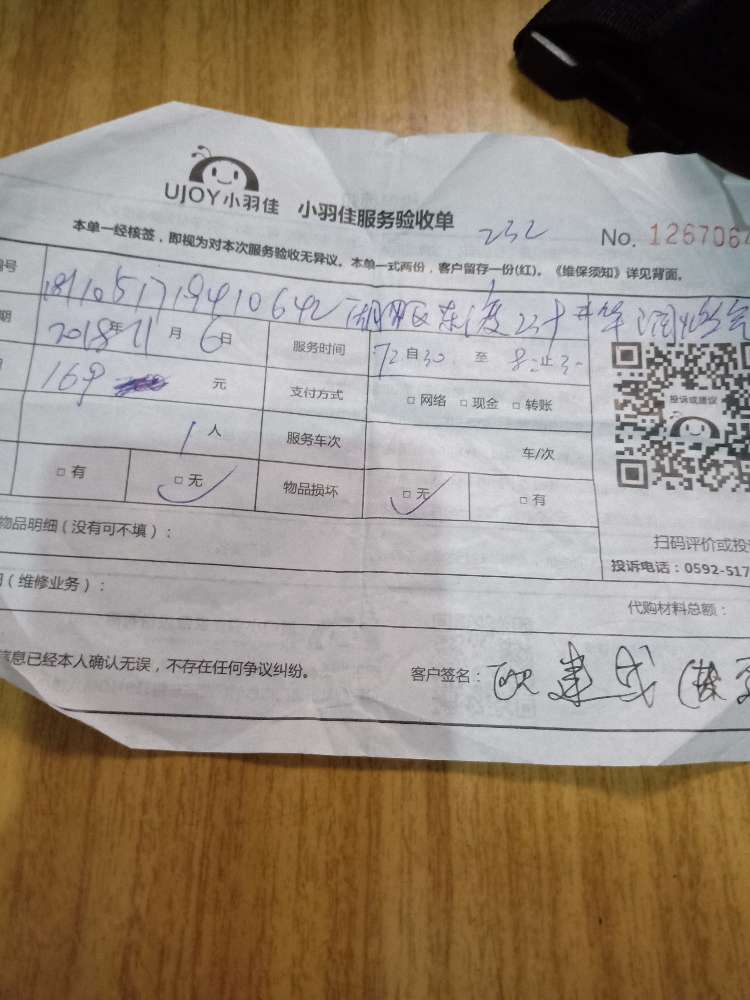 UJOY小羽佳 小羽佳服务验收单 232 No. 1267064
本单一经核签，即视为对本次服务验收无异议。本单一式两份，客户留存一份(红)。《维保须知》详见背面。
编号 181105171941064 湖里区东渡
期 2018年11月6日 服务时间 自30 至 8 止30
169 元 支付方式 □ 网络 □ 现金 □ 转账
投诉或建议
1人 服务车次 车/次
□ 有 □ 无 物品损坏 □ 无 □ 有
物品明细（没有可不填）：
扫码评价或投
投诉电话：0592-517
（维修业务）：
代购材料总额：
信息已经本人确认无误，不存在任何争议纠纷。 客户签名：欧建成